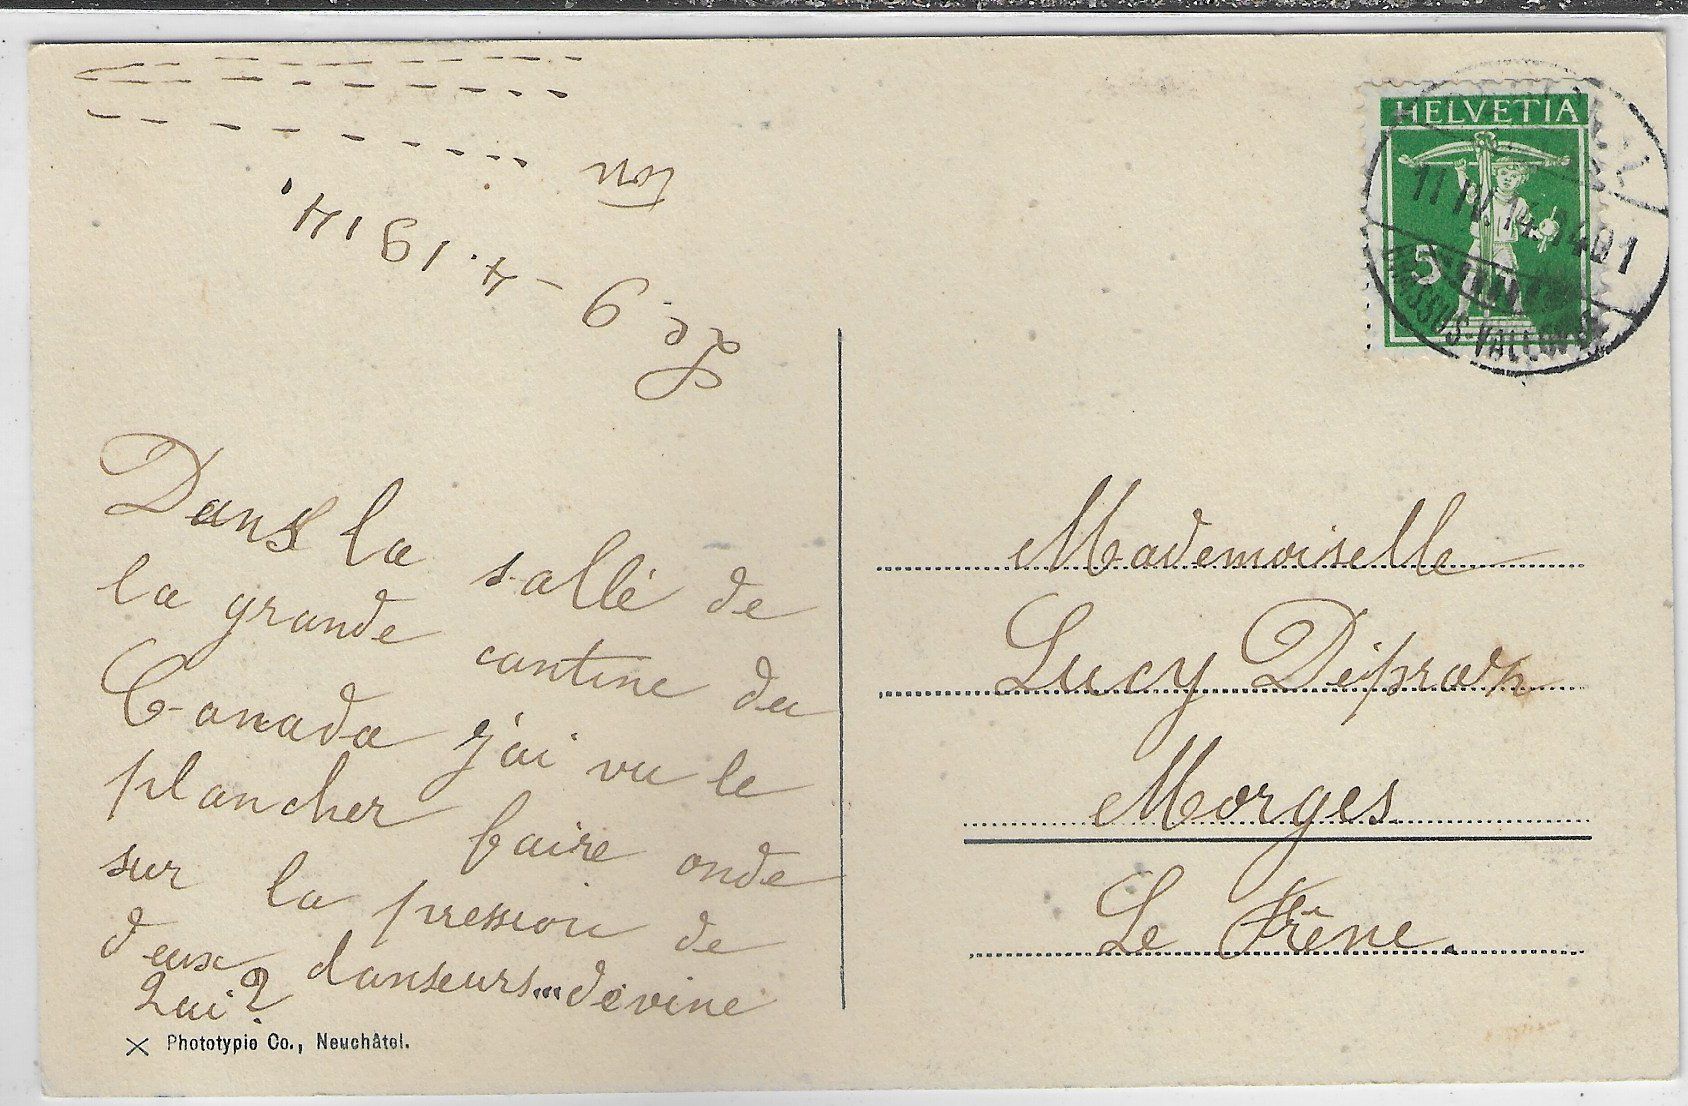 Le 9-4.1914.
Dans la salle de
la grande cantine du
Canada j'ai vu le
plancher faire onde
sur la pression de
deux danseurs...dévine
Qui?
Phototypie Co., Neuchâtel.
HELVETIA
5
11.IV.14.
Mademoiselle
Lucy
Morges
Le Frêne.